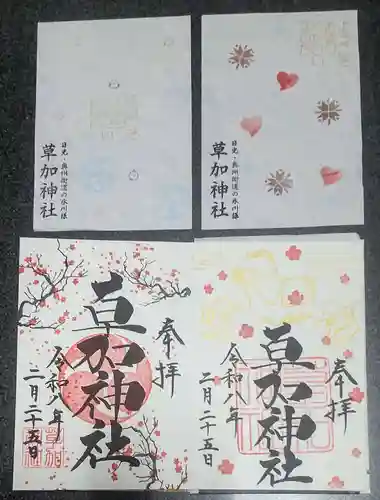 日光・奥州街道の氷川様
草加神社
日光・奥州街道の氷川様
草加神社
奉拝
草加神社
令和八年
二月二十五日
奉拝
草加神社
令和八年
二月二十五日